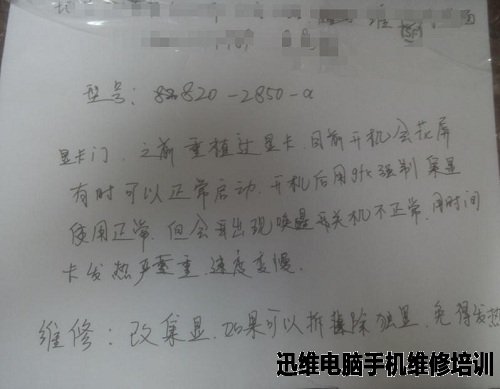 维
型号：820-2850-a
显卡门，之前重植过显卡，目前开机会花屏
有时可以正常启动，开机后用gfx强制集显
使用正常，但会出现唤醒开关机不正常，用时间
卡发热严重，速度变慢。
维修：改集显，如果可以拆除独显，免得发热
迅维电脑手机维修培训